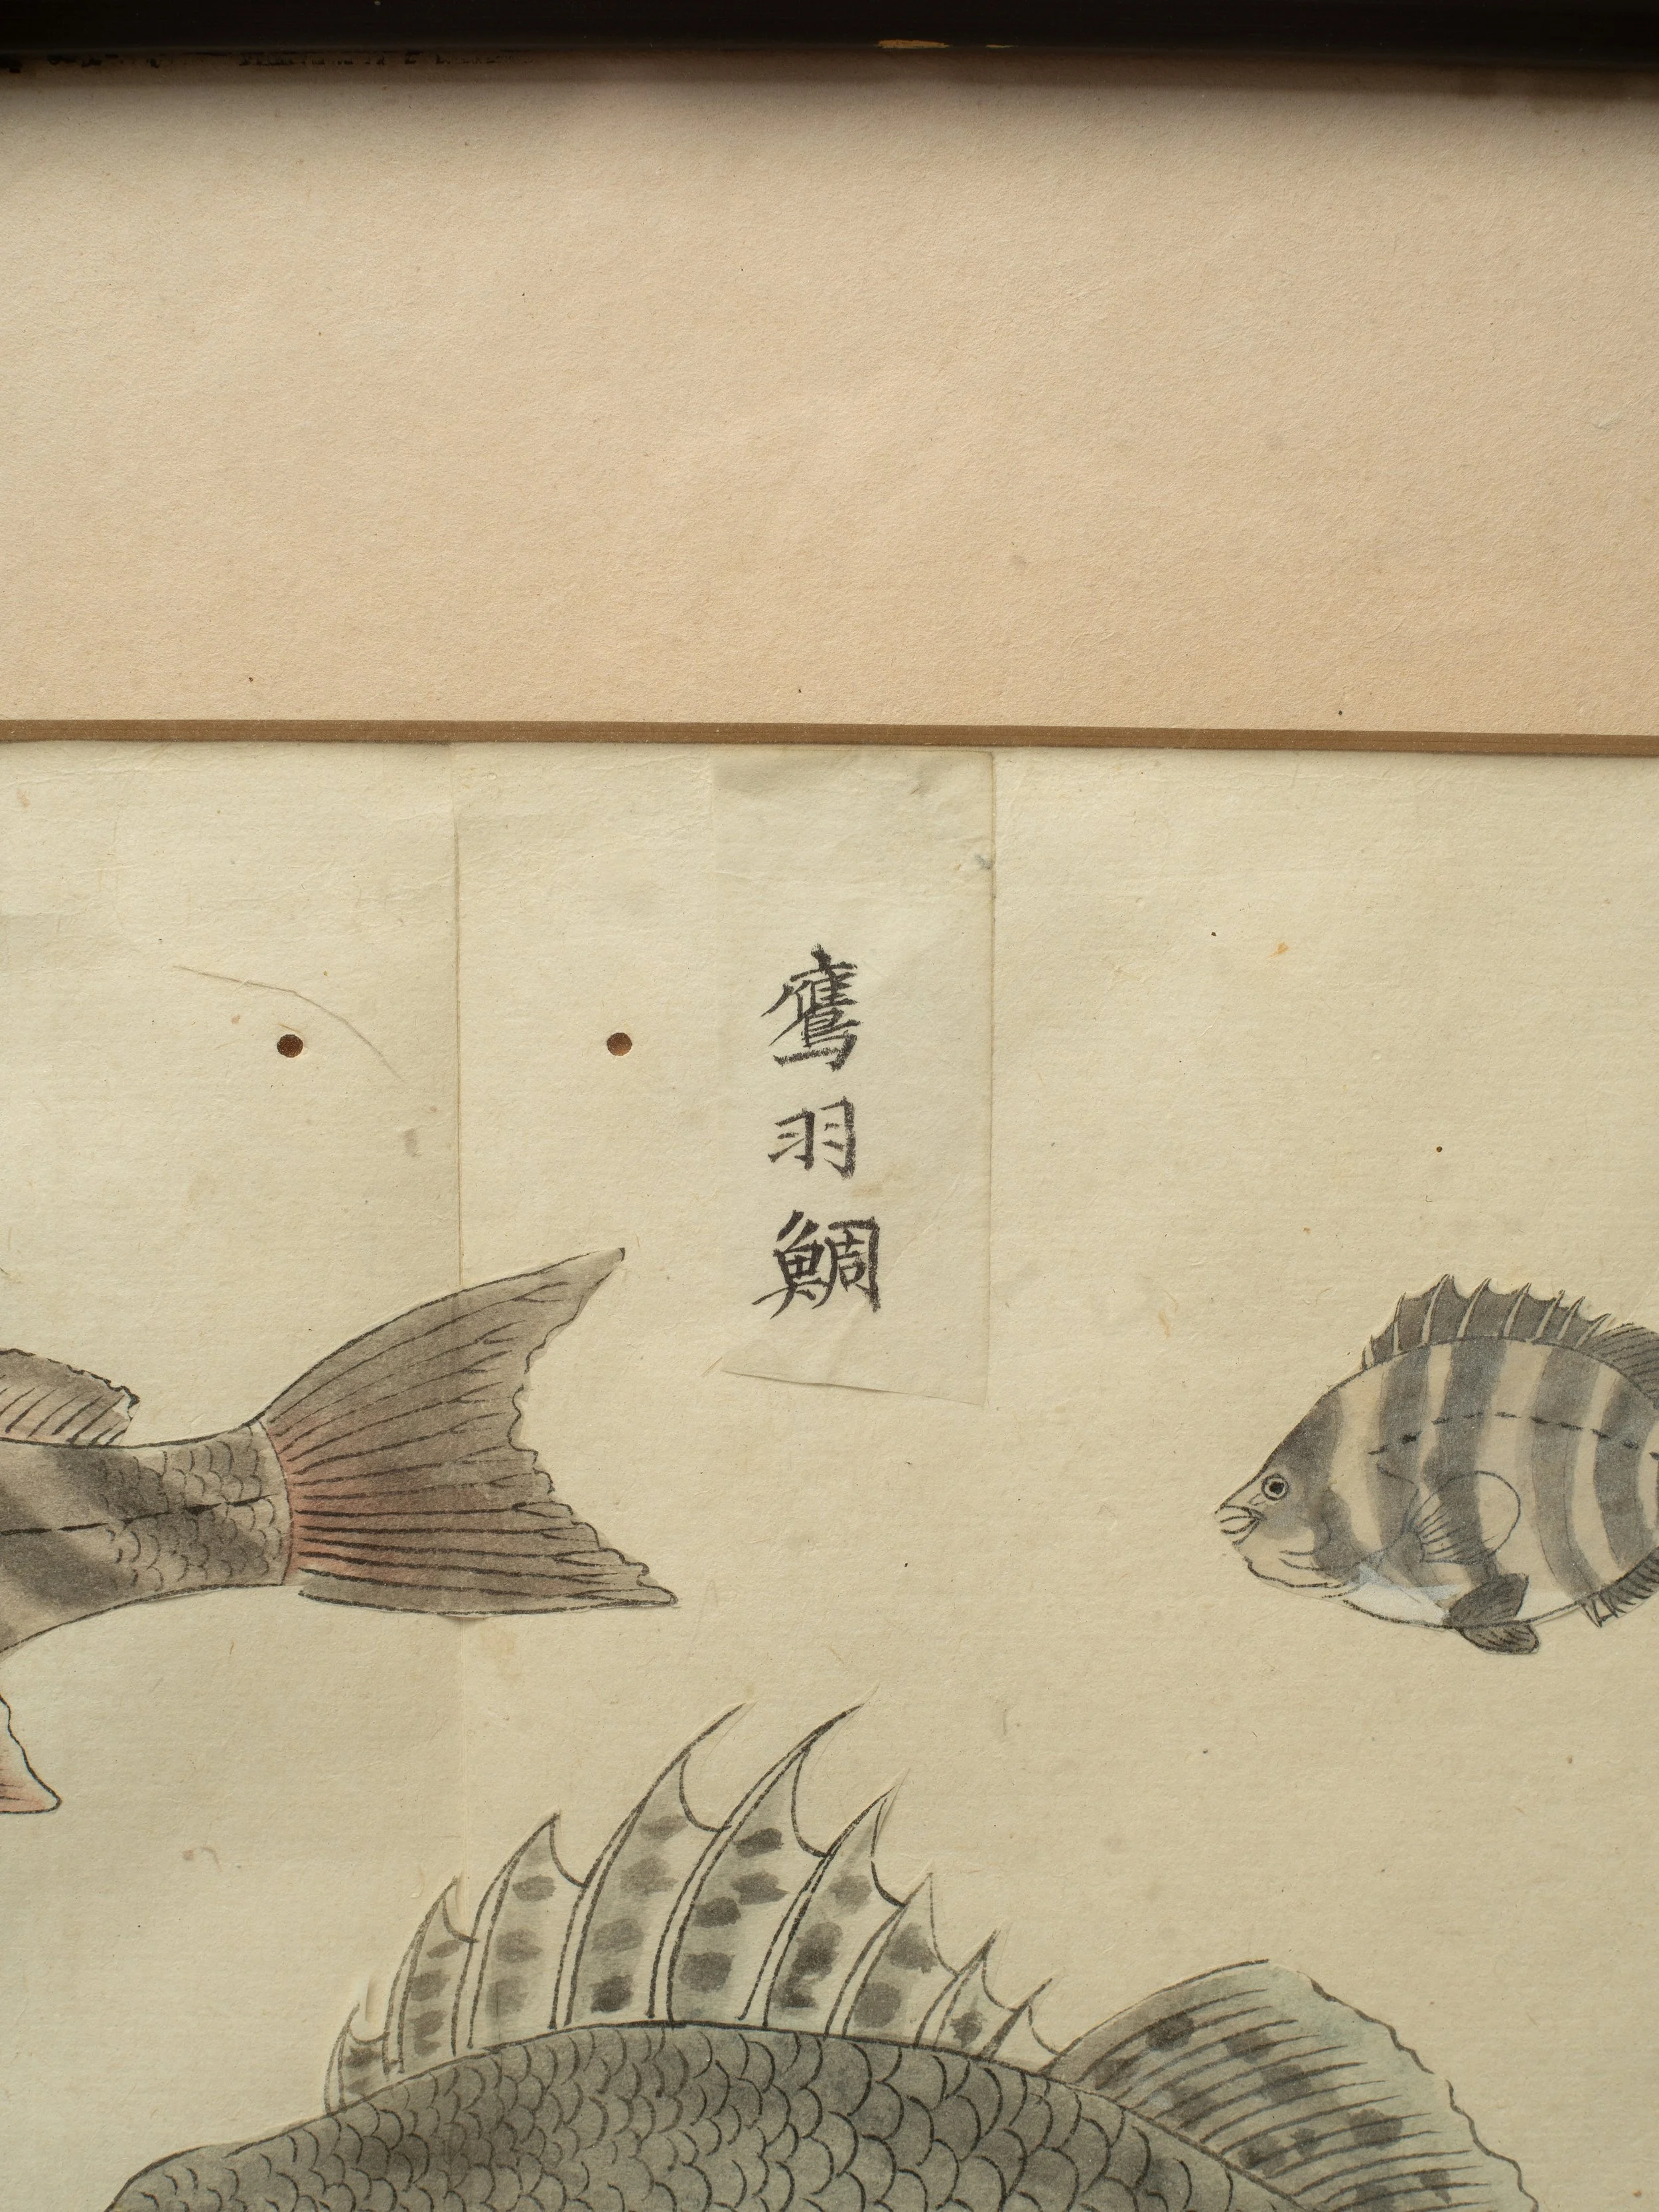 鷹羽鯛